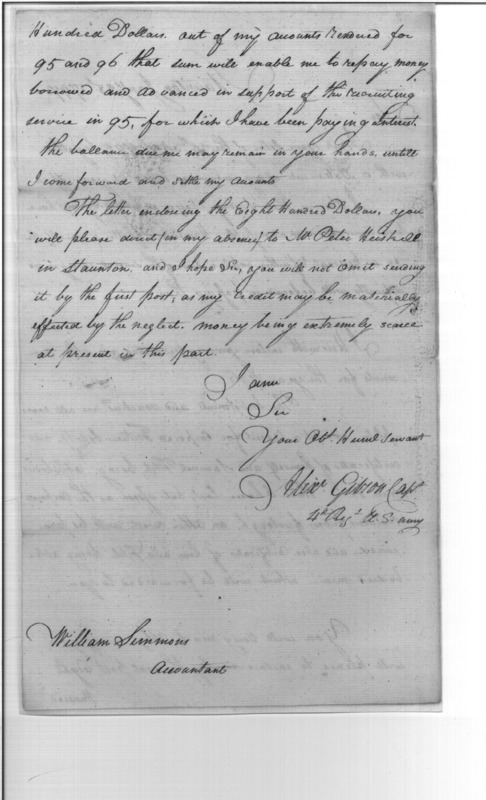 Hundred Dollars. out of my acounts rendured for
95 and 96 that sum will enable me to repay money
borrowed and advanced in support of the recruiting
service in 95, for which I have been paying interest.
the ballance due me may remain in your hands, untill
I come forward and settle my acounts
The letter enclosing the Eight Hundred Dollars, you
will please direct (in my absence) to Mr Peter Heiskell
in Staunton. and I hope Sir, you will not omit sending
it by the first post, as my credit may be materially
effected by the neglect. money being extremely scarce
at present in this part.
I am
Sir
Your Obt Humle Servant
Alexr Gibson Capt
4th Regt U.S. army
William Simmons
Accountant